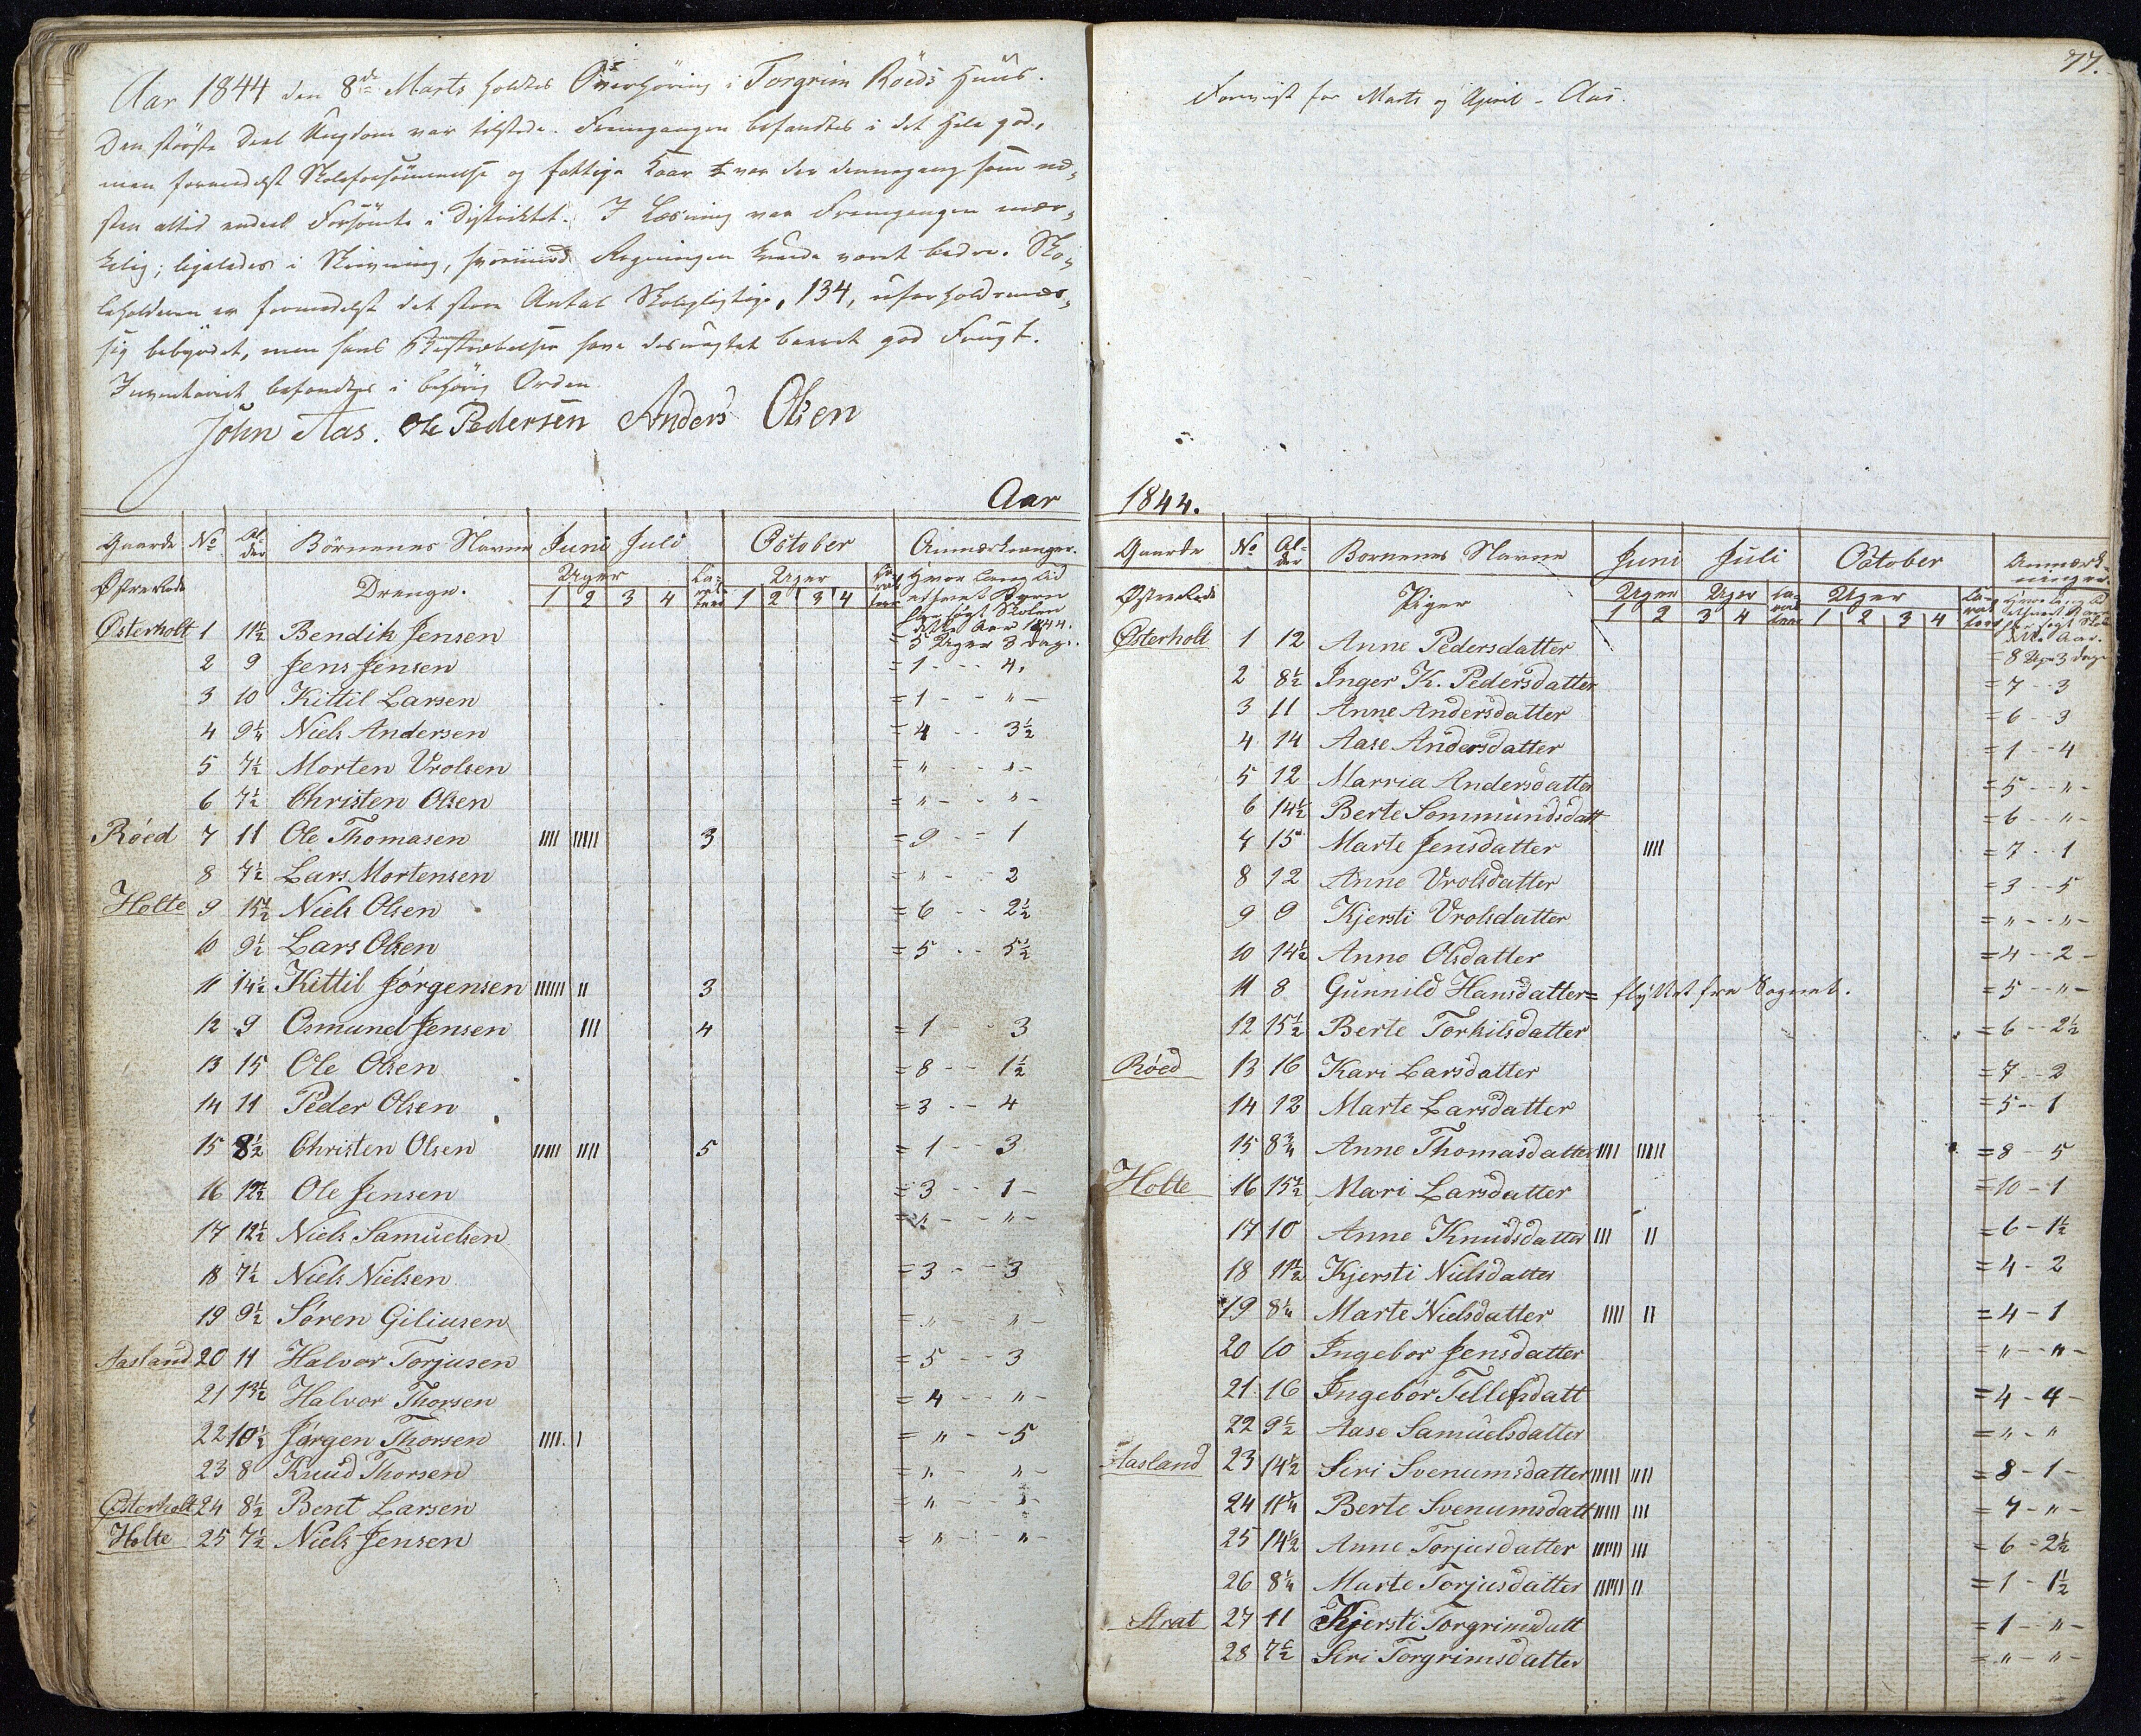 Aar 1844 den 8de Marts holdtes Overhøring i Torgrim Röeds Huus.
Den störste Deel Ungdom var tilstede. Fremgangen befandtes i det Hele god,
men formedelst Skoleforsömmelse og fattige Kaar var der dennegang som næ-
sten altid endeel Forsömte i Distriktet. I Læsning var Fremgangen mær-
kelig; ligeledes i Skrivning, hvorimod Regningen kunde været bedre. Sko-
leholderen er formedelst det store Antal Skolepligtige, 134, uforholdsmæs-
sig bebyrdet, men hans Bestræbelser have desuagtet baaret god Frugt.
Inventariet befandtes i behörig Orden.
John Aas. Ole Pedersen Anders Olsen
Aar
Gaarde No Al-der Börnenes Navne Juni Juli October Anmærkninger.
Østerlede Drenge. Uger Uger Hvor lang Tid
1 2 3 4 1 2 3 4 ethvert Barn
har søgt Skolen
dette Aar 1844.
Østerholt 1 11½ Bendik Jensen = 5 Uger 3 Dage.
2 9 Jens Jensen = 1 - - 4.
3 10 Kittil Larsen = 1 - - " -
4 9¼ Niels Andersen = 4 - - 3½
5 7½ Morten Vrolsen = " - - " -
6 7½ Christen Olsen = " - - " -
Röed 7 11 Ole Thomasen IIII IIIII 3 = 9 - - 1
8 7½ Lars Mortensen = " - - 2
Holte 9 15½ Niels Olsen = 6 - - 2½
10 9½ Lars Olsen = 5 - - 5½
11 14½ Kittil Jörgensen IIIIII II 3
12 9 Osmund Jensen III 4 = 1 - - 3
13 15 Ole Olsen = 8 - - 1½
14 11 Peder Olsen = 3 - - 4
15 8½ Christen Olsen IIIII IIII 5 = 1 - - 3
16 12½ Ole Jensen = 3 - - 1 -
17 12½ Niels Samuelsen = " - - " -
18 7½ Niels Nielsen = 3 - - 3
19 9½ Sören Giliusen = " - - " -
Aasland 20 11 Halvor Torjusen = 5 - - 3
21 13½ Halvor Thorsen = 4 - - " -
22 10½ Jörgen Thorsen IIII. I = " - - 5
23 8 Knud Thorsen = " - " -
Østerholt 24 8½ Bent Larsen = " - - " -
Holte 25 7½ Niels Jensen = " - - " -
77.
for Marts og April - Aas.
1844.
Gaarde No Al-der Börnenes Navne Juni Juli October Anmærk-ninger.
Østerlede Piger Uger Uger Uger
1 2 3 4 1 2 3 4
dette Aar.
Østerholt 1 12 Anne Pedersdatter = 8 Ug. 3 Dage
2 8½ Inger K. Pedersdatter = 7 - - 3
3 11 Anne Andersdatter = 6 - 3
4 14 Aase Andersdatter = 1 - - 4
5 12 Marria Andersdatter = 5 - - " -
6 14½ Berte Sommundsdatt = 6 - - " -
7 15 Marte Jensdatter IIII = 7 - - 1
8 12 Anne Vrolsdatter = 3 - - 5
9 9 Kjersti Vrolsdatter = " - - " -
10 14½ Anne Olsdatter = 4 - - 2 -
11 8 Gunnild Hansdatter = flyttet fra Sognet. = 5 - - " -
12 15½ Berte Torkilsdatter = 6 - - 2½
Röed 13 16 Kari Larsdatter = 7 - - 2
14 12 Marte Larsdatter = 5 - 1
15 8¾ Anne Thomasdatter IIII IIIII = 8 - 5
Holte 16 15½ Mari Larsdatter = 10 - 1
17 10 Anne Knudsdatter III II = 6 - 1½
18 11½ Kjersti Nielsdatter = 4 - 2
19 8¼ Marte Nielsdatter IIII II = 4 - 1
20 10 Ingebor Jensdatter = " - - " -
21 16 Ingebör Tellefsdatt = 4 - 4 -
22 9½ Aase Samuelsdatter = " - "
Aasland 23 14½ Siri Svenumsdatter IIIII IIII = 8 - 1 -
24 11¼ Berte Svenumsdatt IIIII III = 7 - " -
25 14½ Anne Torjusdatter IIIII III = 6 - 2½
26 8¼ Marte Torjusdatter IIIIII II = 1 - 1½
Strat 27 11 Kjersti Torgrimsdatt = 1 - - " -
28 7½ Siri Torgrimsdatter = " - " -